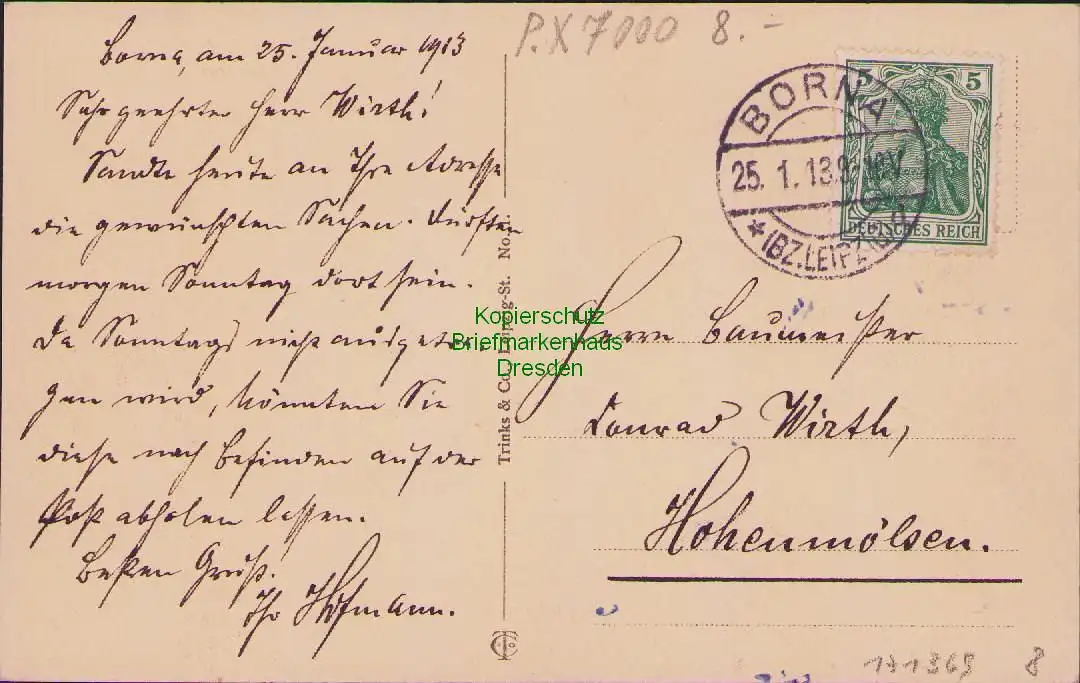 P.X 7000 8.-
Borna, am 25. Januar 1913
Sehr geehrter Herr Wirth!
Sandte heute an Ihre Adresse
die gewünschten Sachen. Dürften
morgen Sonntag dort sein.
Da Sonntags nicht ausgetra-
gen wird, könnten Sie
diese nach Befinden auf der
Post abholen lassen.
Besten Gruß.
Ihr Hofmann.
Trinks & Co., Leipzig-St. No.
BORNA
25. 1. 13.
* (BZ. LEIPZIG)
5
DEUTSCHES REICH
Kopierschutz
Briefmarkenhaus
Dresden
Herrn Baumeister
Conrad Wirth,
Hohenmölsen.
171369 8